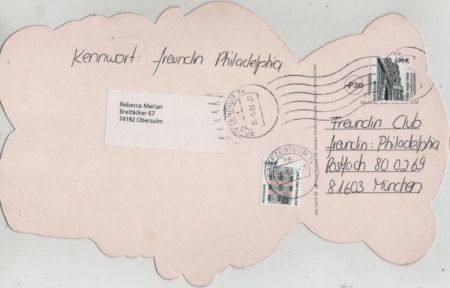 Kennwort: freundin Philadelphia
Rebecca Marian
Breitäcker 67
74182 Obersulm
BRIEFZENTRUM 74
P30
Freundin Club
freundin: Philadelphia
Postfach 80 02 69
81603 München
BRIEFZENTRUM